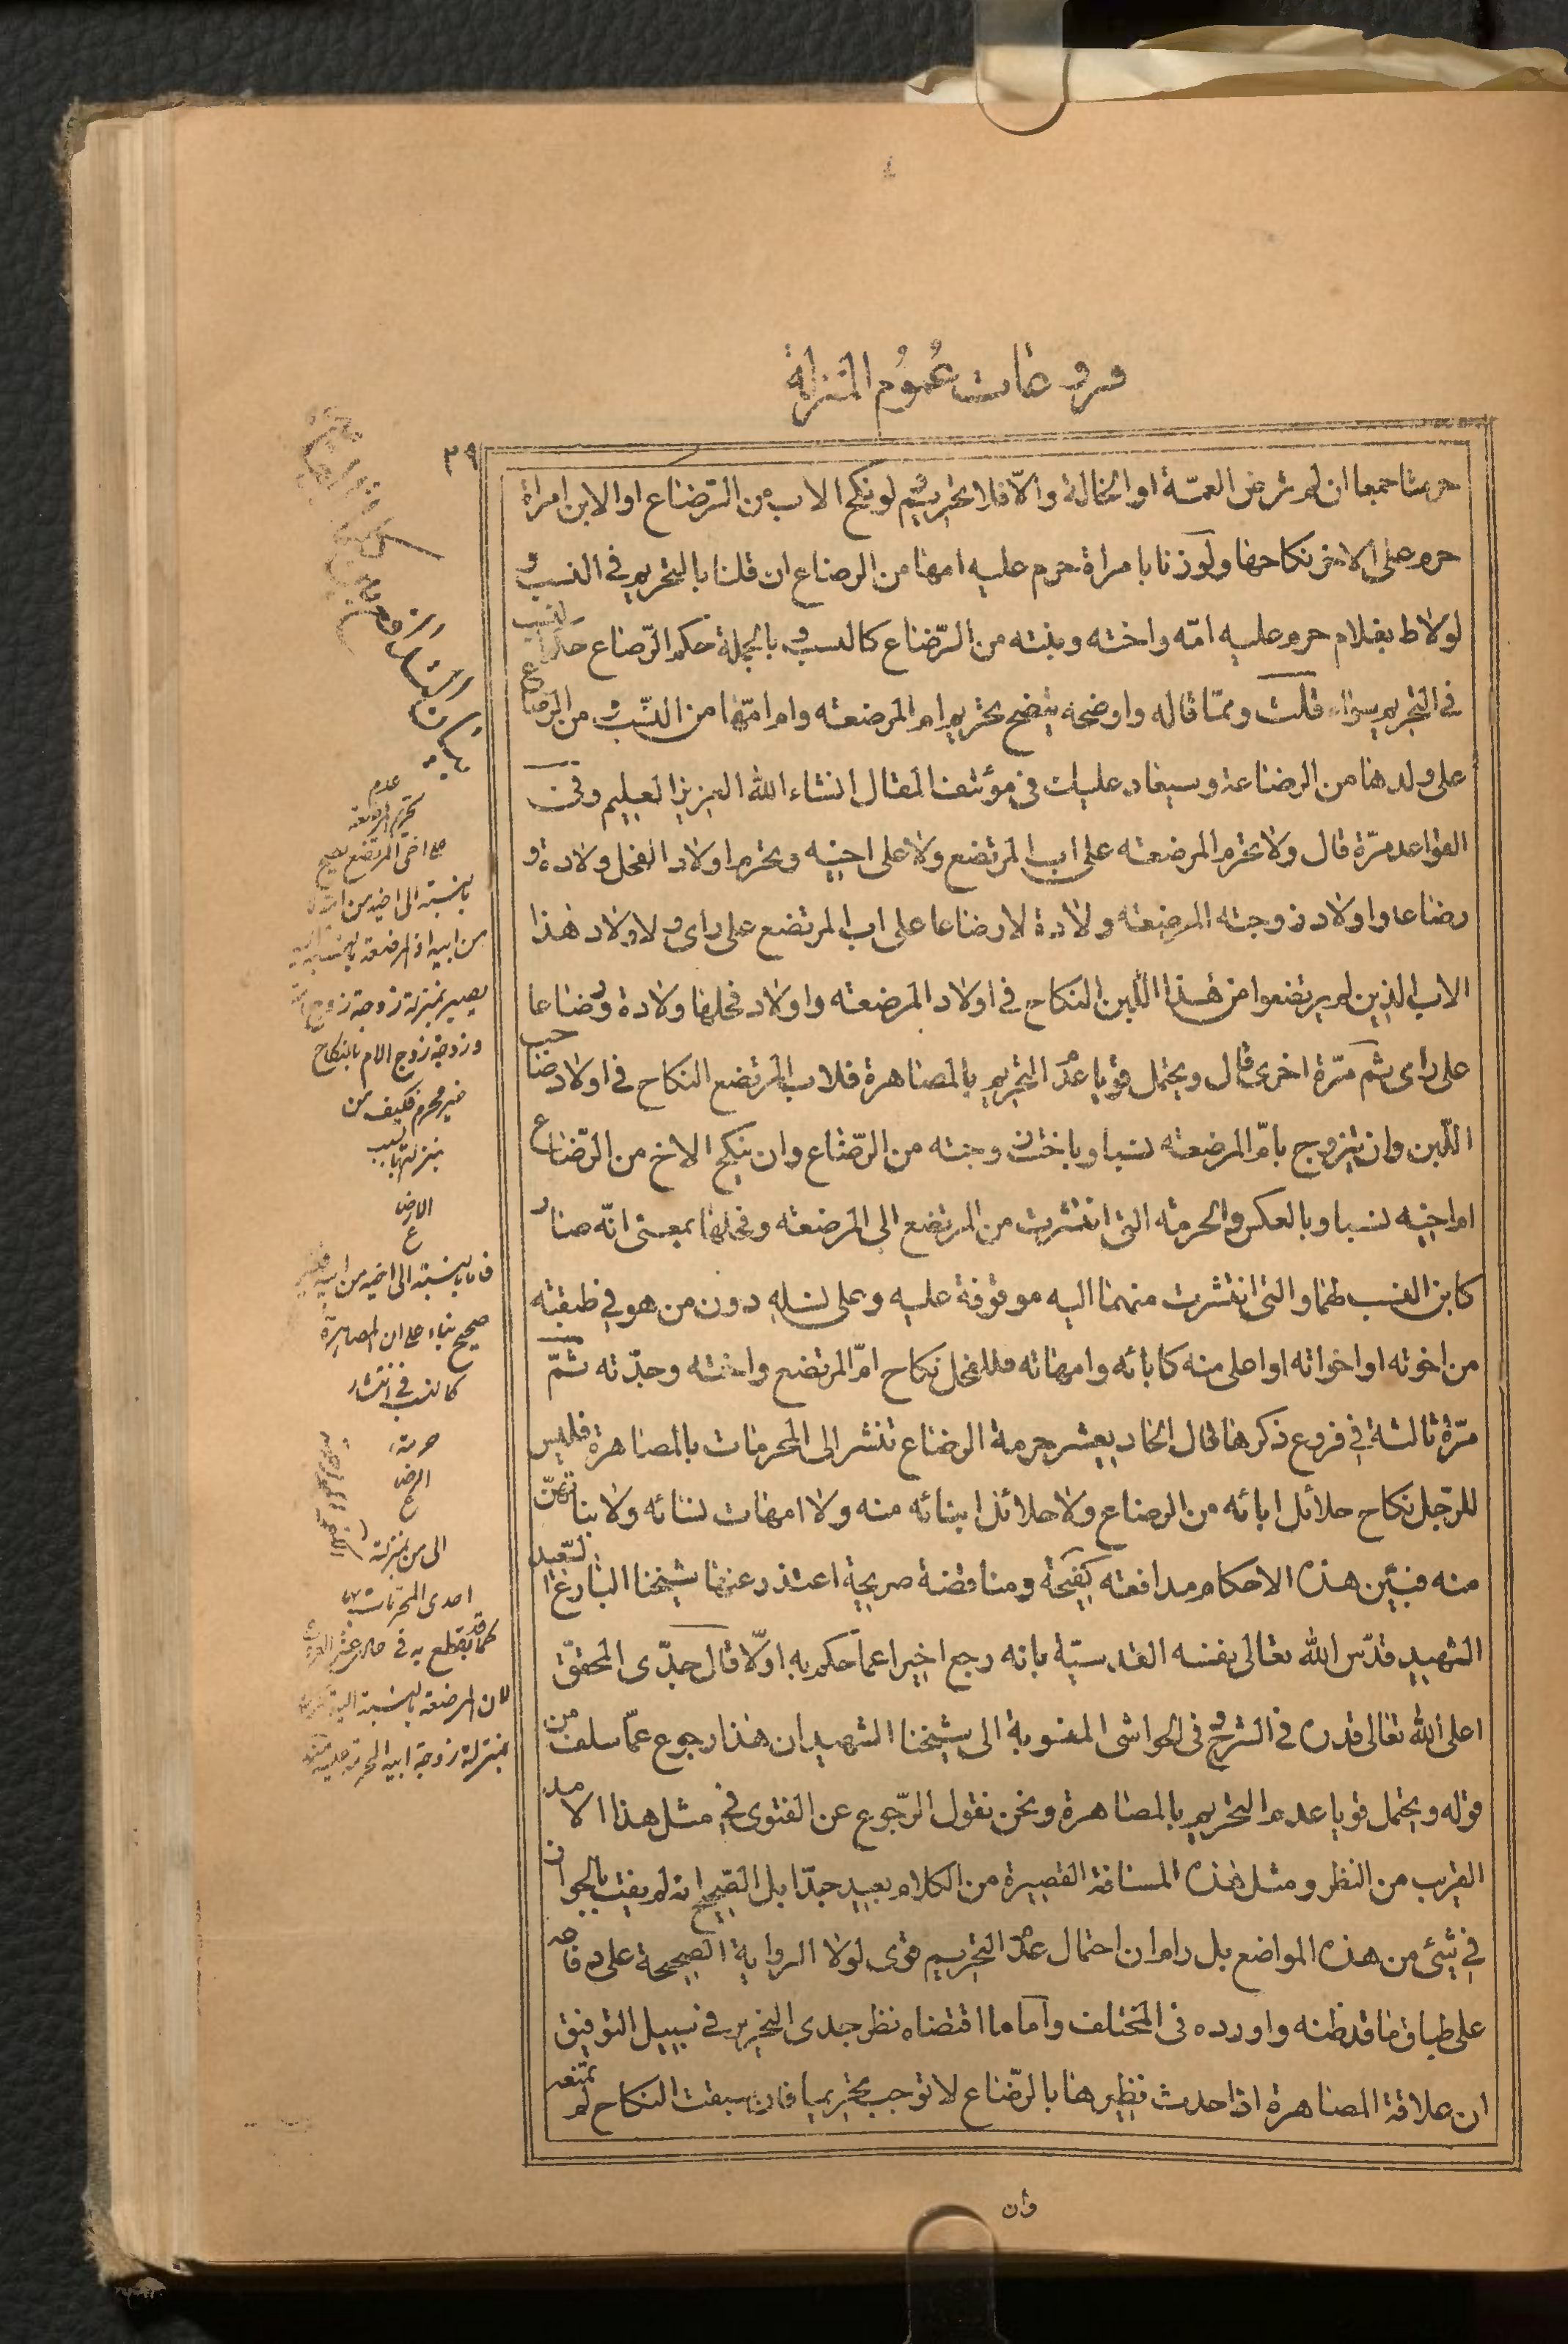 فروعات عموم المنزلة
٣٩
حرمتا جميعا ان لم ترض العمّة او الخالة والّا فلا تحريم ثم لو نكح الاب من الرّضاع او الابن امراة
حرم على الاخر نكاحها ولو زنا بامراة حرم عليه امها من الرضاع ان قلنا بالتحريم فى النسب و
لو لاط بغلام حرم عليه امّه واخته وبنته من الرّضاع كالنسب وبالجملة حكم الرّضاع حكم النسب
فى التحريم سواء قلت وممّا قاله واوضحه يتضح تحريم ام المرضعة وام امّها من النّسب ومن الرضاع
على ولدها من الرضاعة وسيعاد عليك فى مؤتنف المقال انشاء الله العزيز العليم وفى
القواعد مرّة قال ولا تحرم المرضعة على اب المرتضع ولا على اخيه ويحرم اولاد الفحل ولادة و
رضاعا واولاد زوجته المرضعة ولادة لا رضاعا على اب المرتضع على راى ولاولاد هذا
الاب الذين لم يرتضعوا من هذا اللّبن النكاح فى اولاد المرضعة واولاد فحلها ولادة ورضاعا
على راى ثم مرّة اخرى قال ويحتمل قويا عدم التحريم بالمصاهرة فلاب المرتضع النكاح فى اولاد صاحب
اللّبن وان يتزوج بامّ المرضعة نسبا وباخت زوجته من الرّضاع وان ينكح الاخ من الرّضاع
ام اخيه نسبا وبالعكس والحرمة التى انتشرت من المرتضع الى المرضعة وفحلها بمعنى انّه صار
كابن النسب لهما والتى انتشرت منهما اليه موقوفة عليه وعلى نسله دون من هو فى طبقته
من اخوته او اخواته او اعلى منه كابائه وامهاته فللفحل نكاح امّ المرتضع واخته وجدّته ثمّ
مرّة ثالثة فى فروع ذكرها قال الحاديعشر حرمة الرضاع تنشر الى المحرمات بالمصاهرة فليس
للرّجل نكاح حلائل ابائه من الرضاع ولا حلائل ابنائه منه ولا امهات نسائه ولا بناتهنّ
منه فبين هذه الاحكام مدافعة كفيحة ومناقضة صريحة اعتذر عنها شيخنا البارع السعيد
الشهيد قدّس الله تعالى نفسه القدسيّة بانه رجع اخيرا عما حكم به اوّلا قال جدّى المحقق
اعلى الله تعالى قدره فى الشرح وفى الحواشى المنسوبة الى شيخنا الشهيد ان هذا رجوع عمّا سلف من
قوله ويحتمل قويا عدم التحريم بالمصاهرة ونحن نقول الرّجوع عن الفتوى فى مثل هذا الامد
القريب من النظر ومثل هذه المسافة القصيرة من الكلام بعيد جدّا بل الصّحيح انه لم يفت بالجواز
فى شئ من هذه المواضع بل رام ان احتمال عدم التحريم قوى لولا الرواية الصحيحة على وفاقه
على طباق ما قد ظنه واورده فى المختلف واما ما اقتضاه نظر جدى النحرير فى سبيل التوفيق
ان علاقة المصاهرة اذا حدث نظيرها بالرّضاع لا توجب تحريما فان سبقت النكاح لم تمنعه
وان
عدم
تحريم المرضعة
على اخى المرتضع صحيح
بالنسبة الى اخيه من امه
من ابيه اذ المرضعة بالنسبة اليه
يصير بمنزلة زوجة زوج
وزوجة زوج الام بالنكاح
غير محرم فكيف من
بمنزلتها بسبب
الارض
ع
فاما بالنسبة الى اخيه من ابيه فغير
صحيح بناء على ان المصاهرة
كالنسب فى انتشار
حرمة
الرض
ع
الى من بمنزلة
احدى المحرمات
كما قد يقطع به فى حاديعشر الفروع
لان المرضعة بالنسبة اليه
بمنزلة زوجة ابيه المحرمة عليه